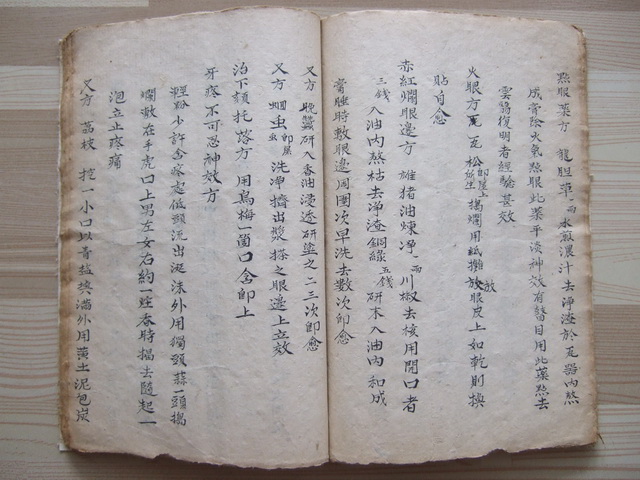 点眼藥方 龍胆草一兩水煎濃汁去净渣於瓦器內熬
成膏除火氣点眼此藥平淡神效有瞽目用此藥点去
雲翳復明者經驗甚效
火眼方 瓦瓦松即屋上所生搗爛用紙攤放眼皮上如乾則換
貼自愈
赤紅爛眼邊方 雄猪油煉净一兩川椒去核用開口者
三錢入油內熬枯去净渣銅綠五錢研末入油內和成
膏睡時敷眼邊周圍次早洗去數次即愈
又方 晚蠶研入香油浸透研塗之二三次即愈
又方 蛔虫洗净擠出漿搽之眼邊上立效
治下頦托落方 用烏梅一箇口含即上
牙疼不可忍神效方
輕粉少許含家處低頭流出涎沫外用獨頭蒜一頭搗
爛敷在手虎口上男左女右約一炷香時揭去隨起一
泡立止疼痛
又方 荔枝 挖一小口以青盐填滿外用黄土泥包炭